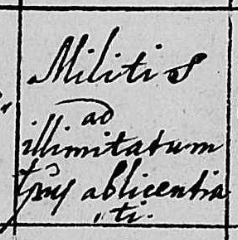 Militis
ad
illimitatum
tpus ablicentia
ti.